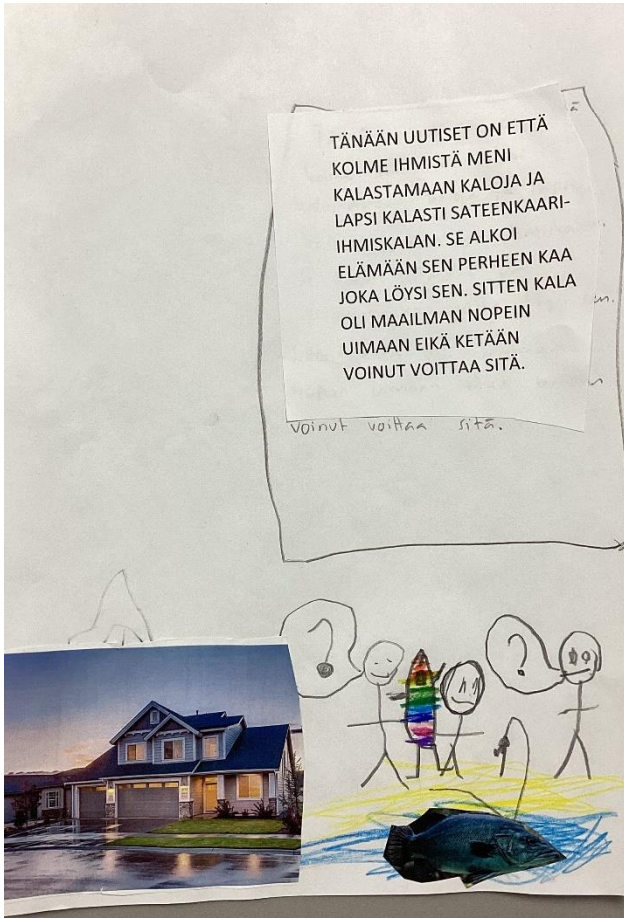 TÄNÄÄN UUTISET ON ETTÄ
KOLME IHMISTÄ MENI
KALASTAMAAN KALOJA JA
LAPSI KALASTI SATEENKAARI-
IHMISKALAN. SE ALKOI
ELÄMÄÄN SEN PERHEEN KAA
JOKA LÖYSI SEN. SITTEN KALA
OLI MAAILMAN NOPEIN
UIMAAN EIKÄ KETÄÄN
VOINUT VOITTAA SITÄ.
voinut voittaa sitä.
? ?